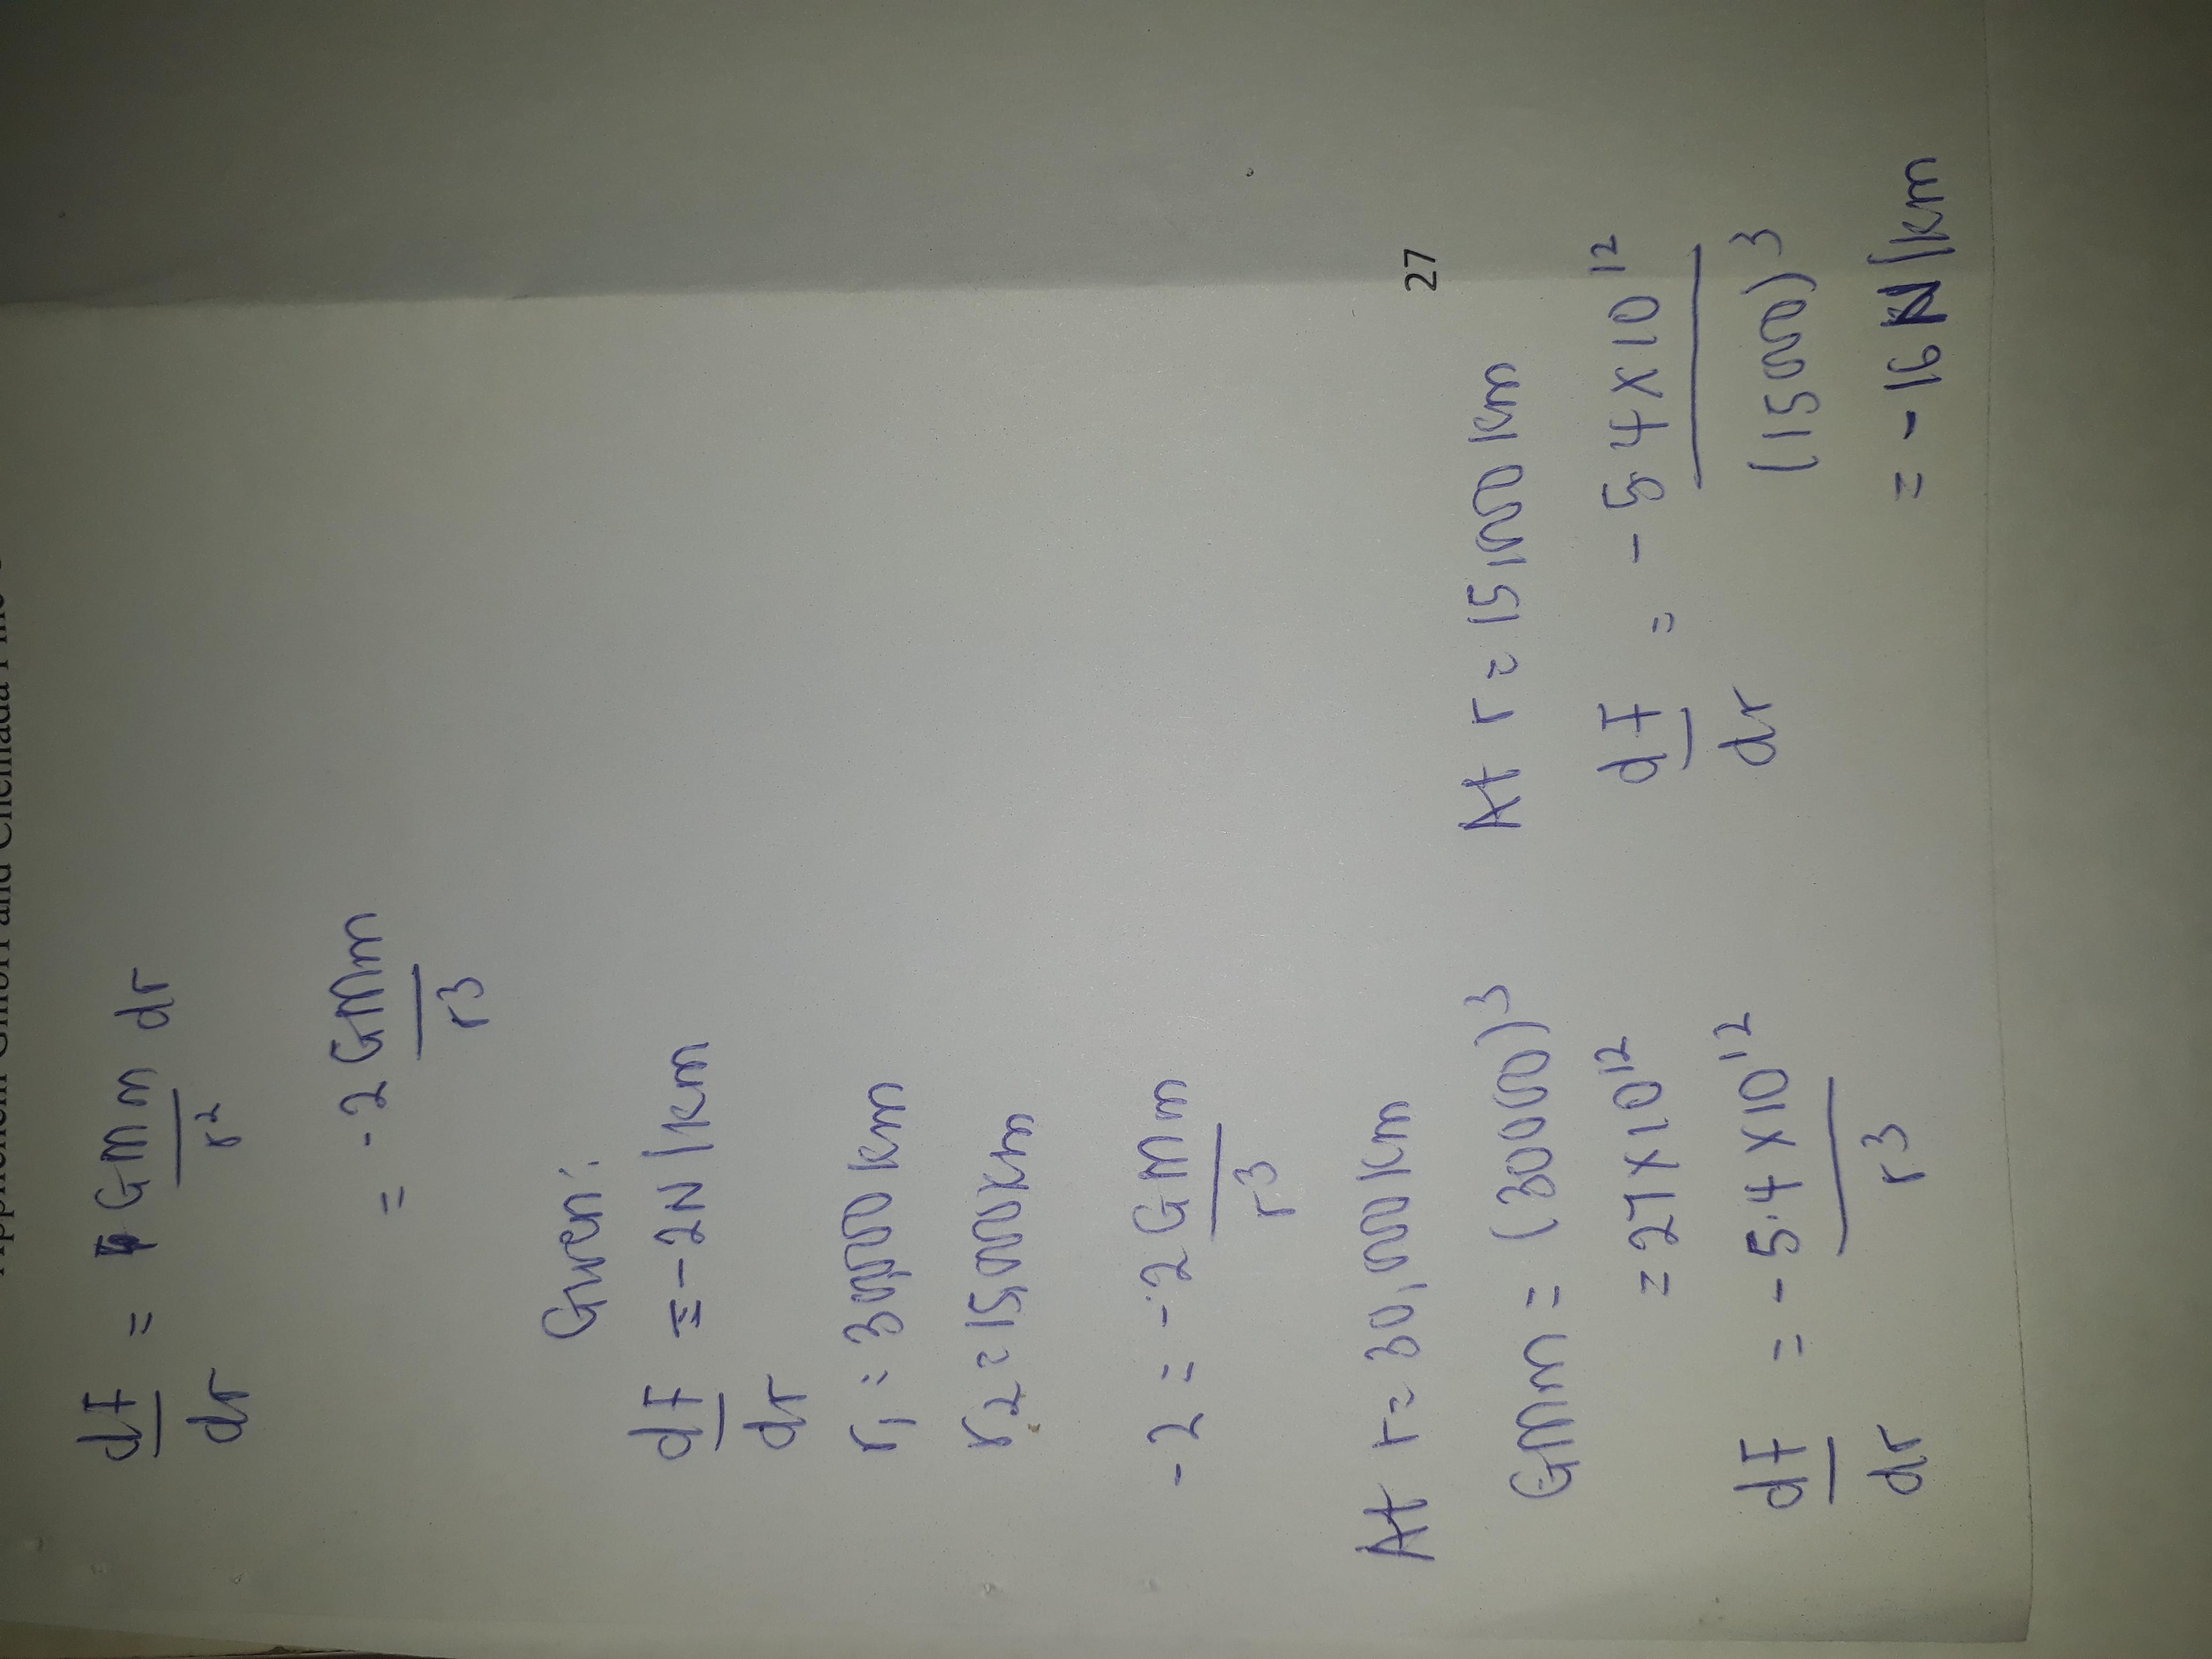 dF/dr = GMm/r² dr
= -2GMm/r³
Given:
dF/dr = -2N/km
r₁ = 30,000km
r₂ = 15,000km
-2 = -2GMm/r³
At r = 30,000km
GMm = (30000)³
= 27×10¹²
dF/dr = -5.4×10¹²/r³
27
At r = 15,000km
dF/dr = -5.4×10¹²/(15000)³
= -16N/km